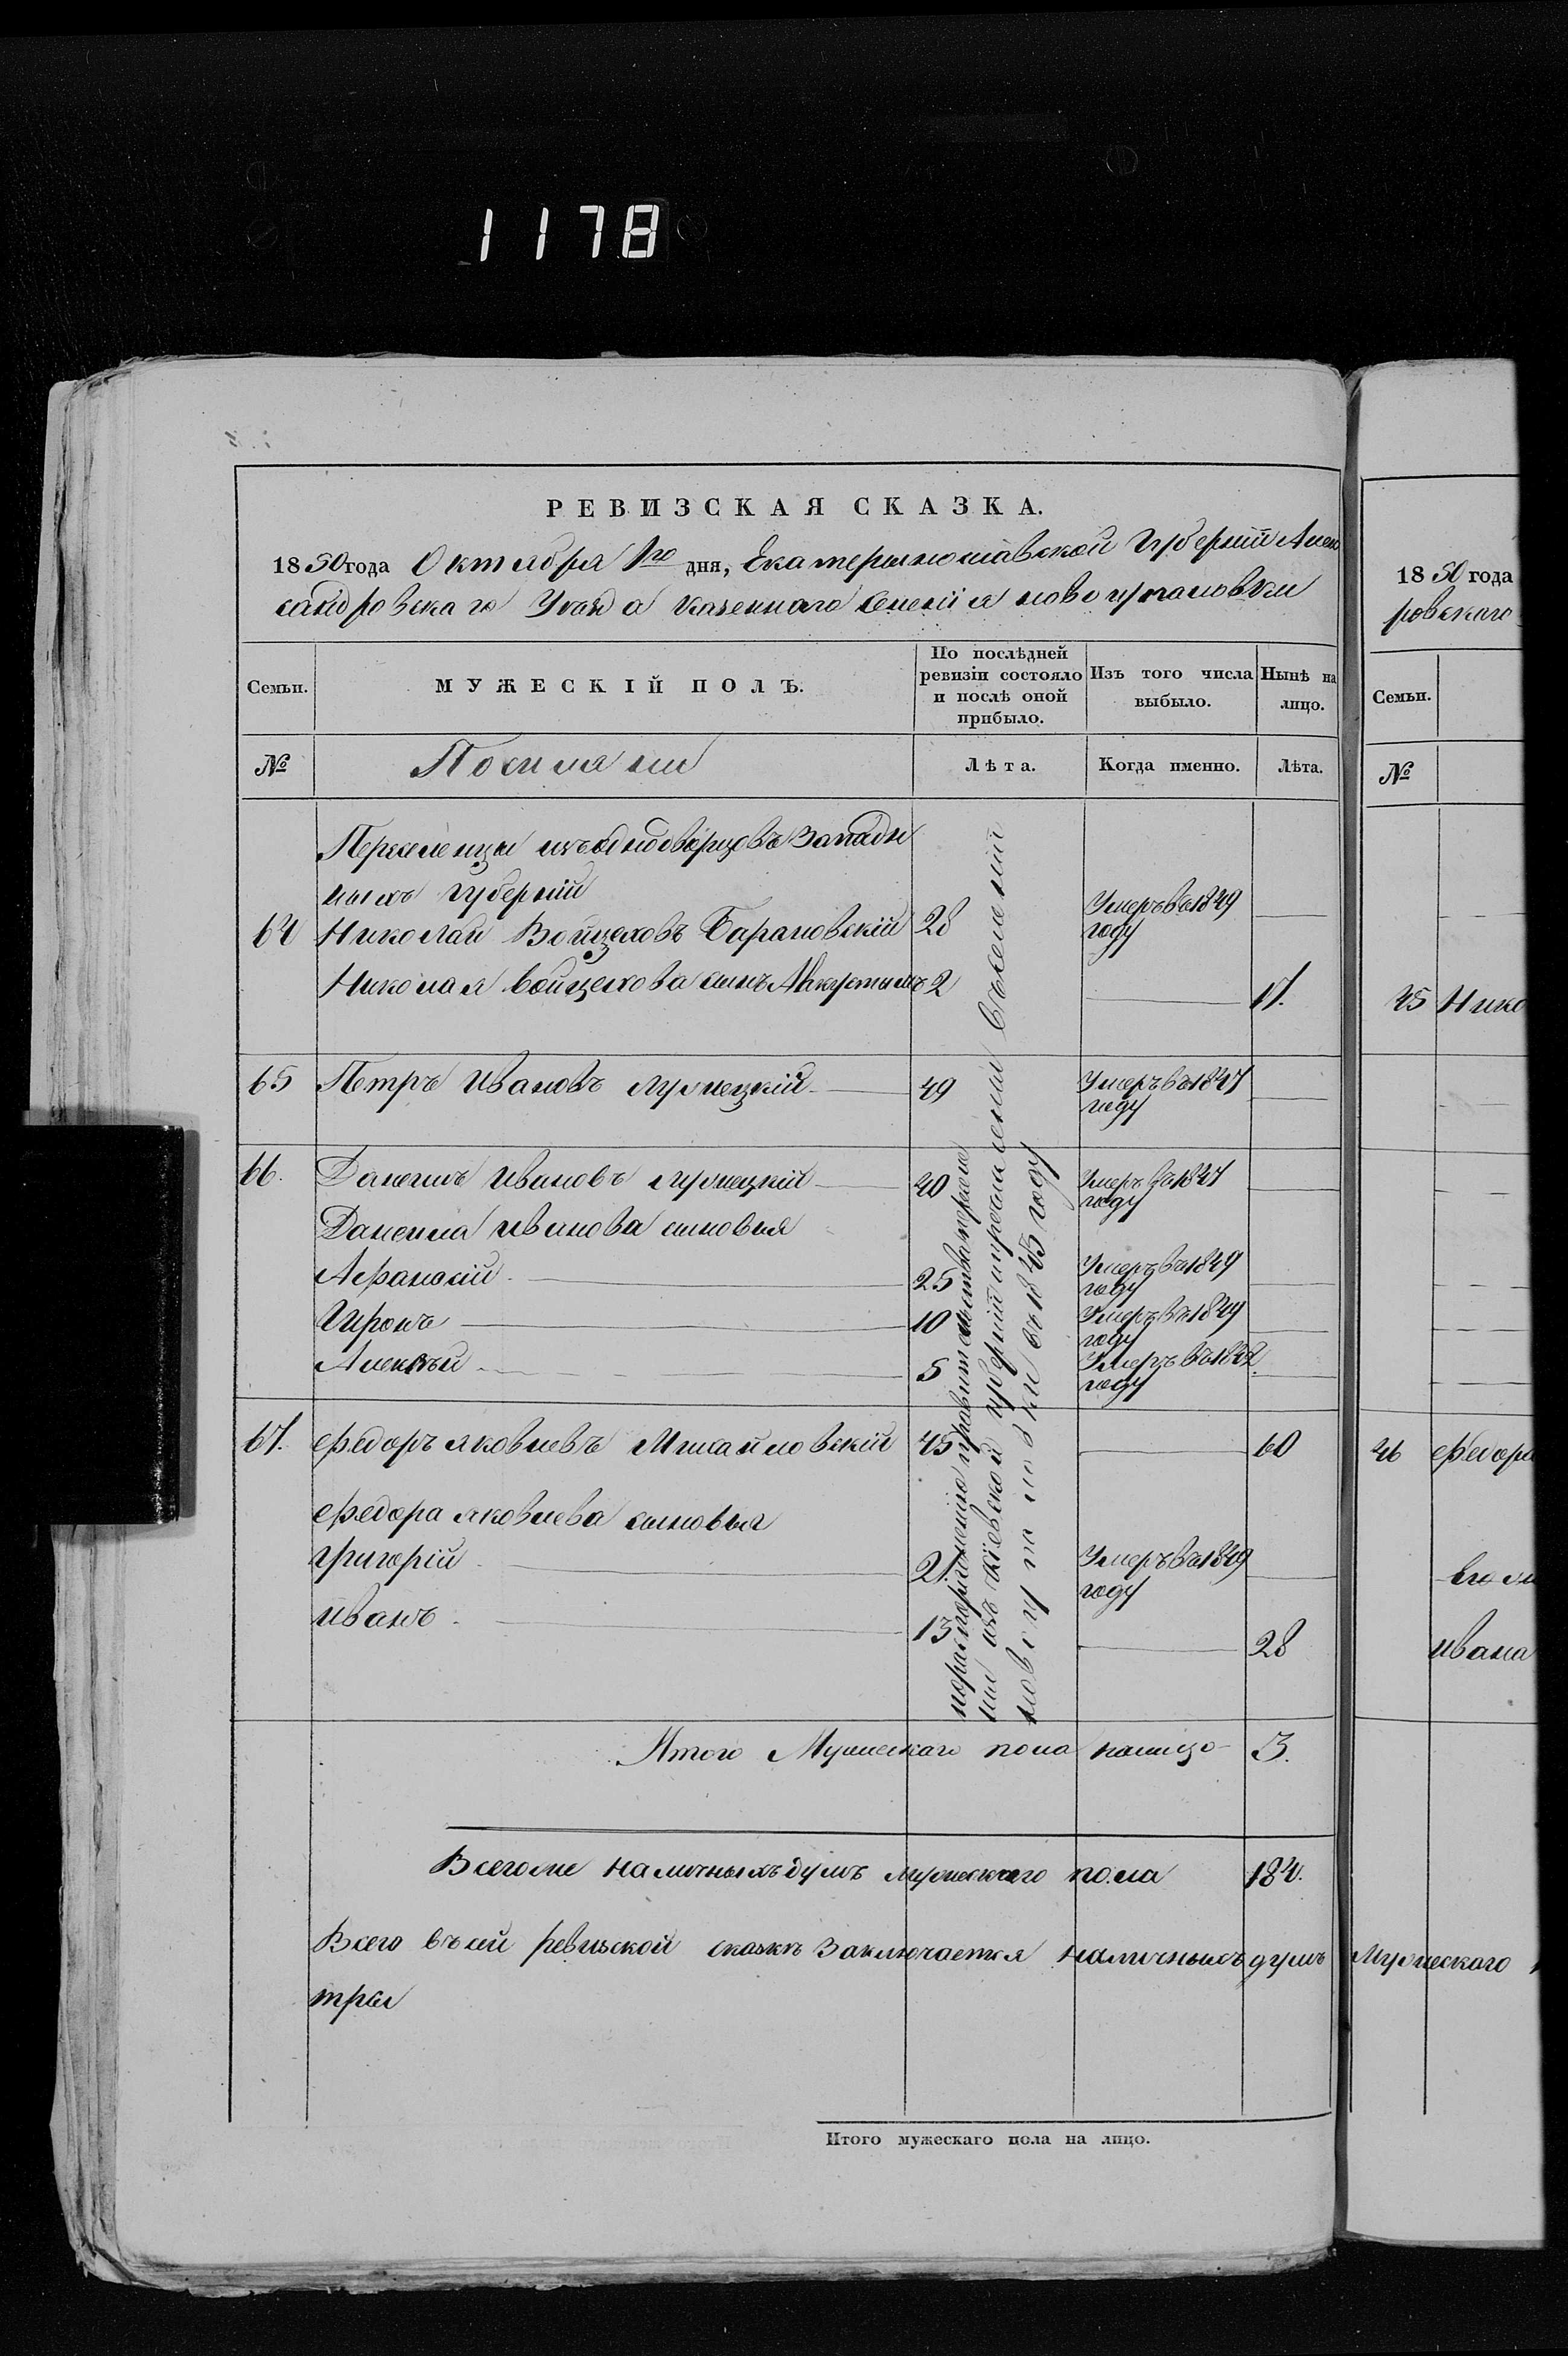 1178
РЕВИЗСКАЯ СКАЗКА.
1850 года Октября 1го дня, Екатеринославской Губерніи Алек
сандровскаго Уезда казеннаго Селенія новогупаловки
Семьи.
МУЖЕСКІЙ ПОЛЪ.
По послѣдней
ревизіи состояло
и послѣ оной
прибыло.
Изъ того числа
выбыло.
Нынѣ на
лицо.
№
Поселяни
Лѣта.
Когда именно.
Лѣта.
Переселенцы изъ однодворцовъ Западн
ныхъ губерній
64 Николай Войцеховъ Барановскій 28 Умеръ въ 1849
году
Николая Войцехова сынъ Августинъ 2 17.
65 Петръ Ивановъ 49 Умеръ въ 1847
году
66. Данеилъ Ивановъ 40 Умеръ въ 1847
году
Данеила Иванова сыновья
Афанасій 25 Умеръ въ 1849
году
10 Умеръ въ 1849
году
Алексѣй 5 Умеръ въ 1842
году
67. Федоръ Яковлевъ Михайловскій 45 60
Федора Яковлева сыновья
Григорій 21. Умеръ въ 1849
году
Иванъ 13 28
по распоряженію правительства переве
ни изъ Кіевской губерніи и причислены въ селеніи
новогупаловки въ 1845 году
Итого Мужескаго пола налицо 3.
Всего же наличныхъ душъ мужескаго пола 184.
Всего въ сей ревизской сказкѣ заключается наличныхъ душъ Мужескаго
три
Итого мужескаго пола на лицо.
1850 года
ровскаго
Семьи.
№
45 Нико
46 Федора
Ивана